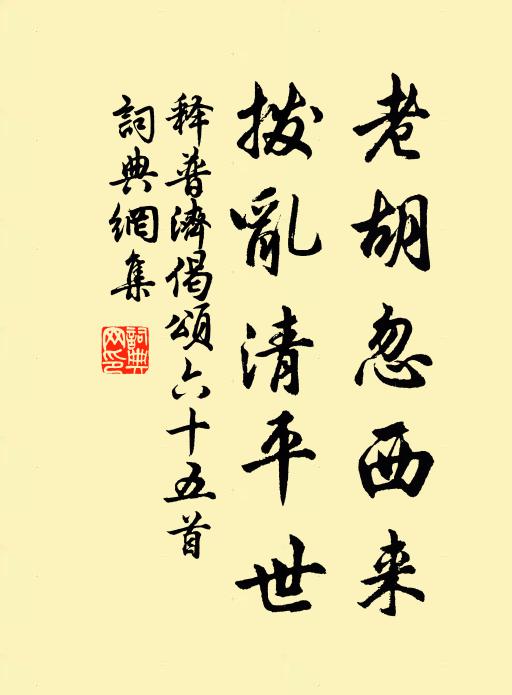 老胡忽西来
拨亂清平世
释普濟偈頌六十五首
詞典網集
詞典网印